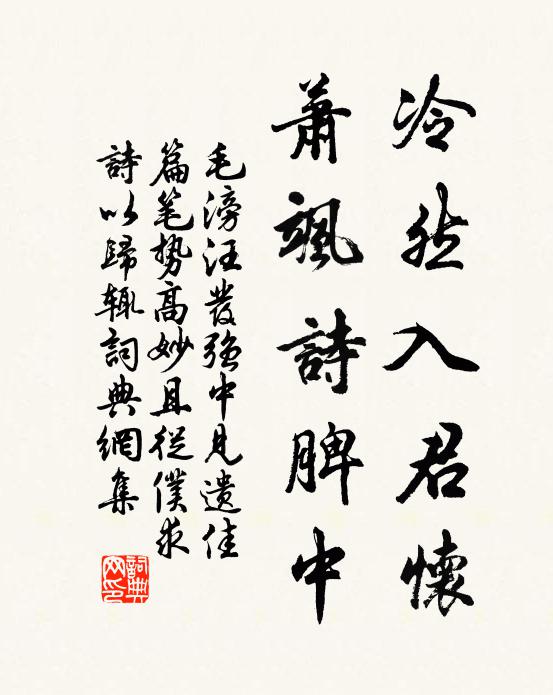 冷然入君懷
蕭颯詩脾中
毛滂汪發強中見遺佳
篇笔势高妙且從僕求
詩以歸輒詞典網集
詞典
网印